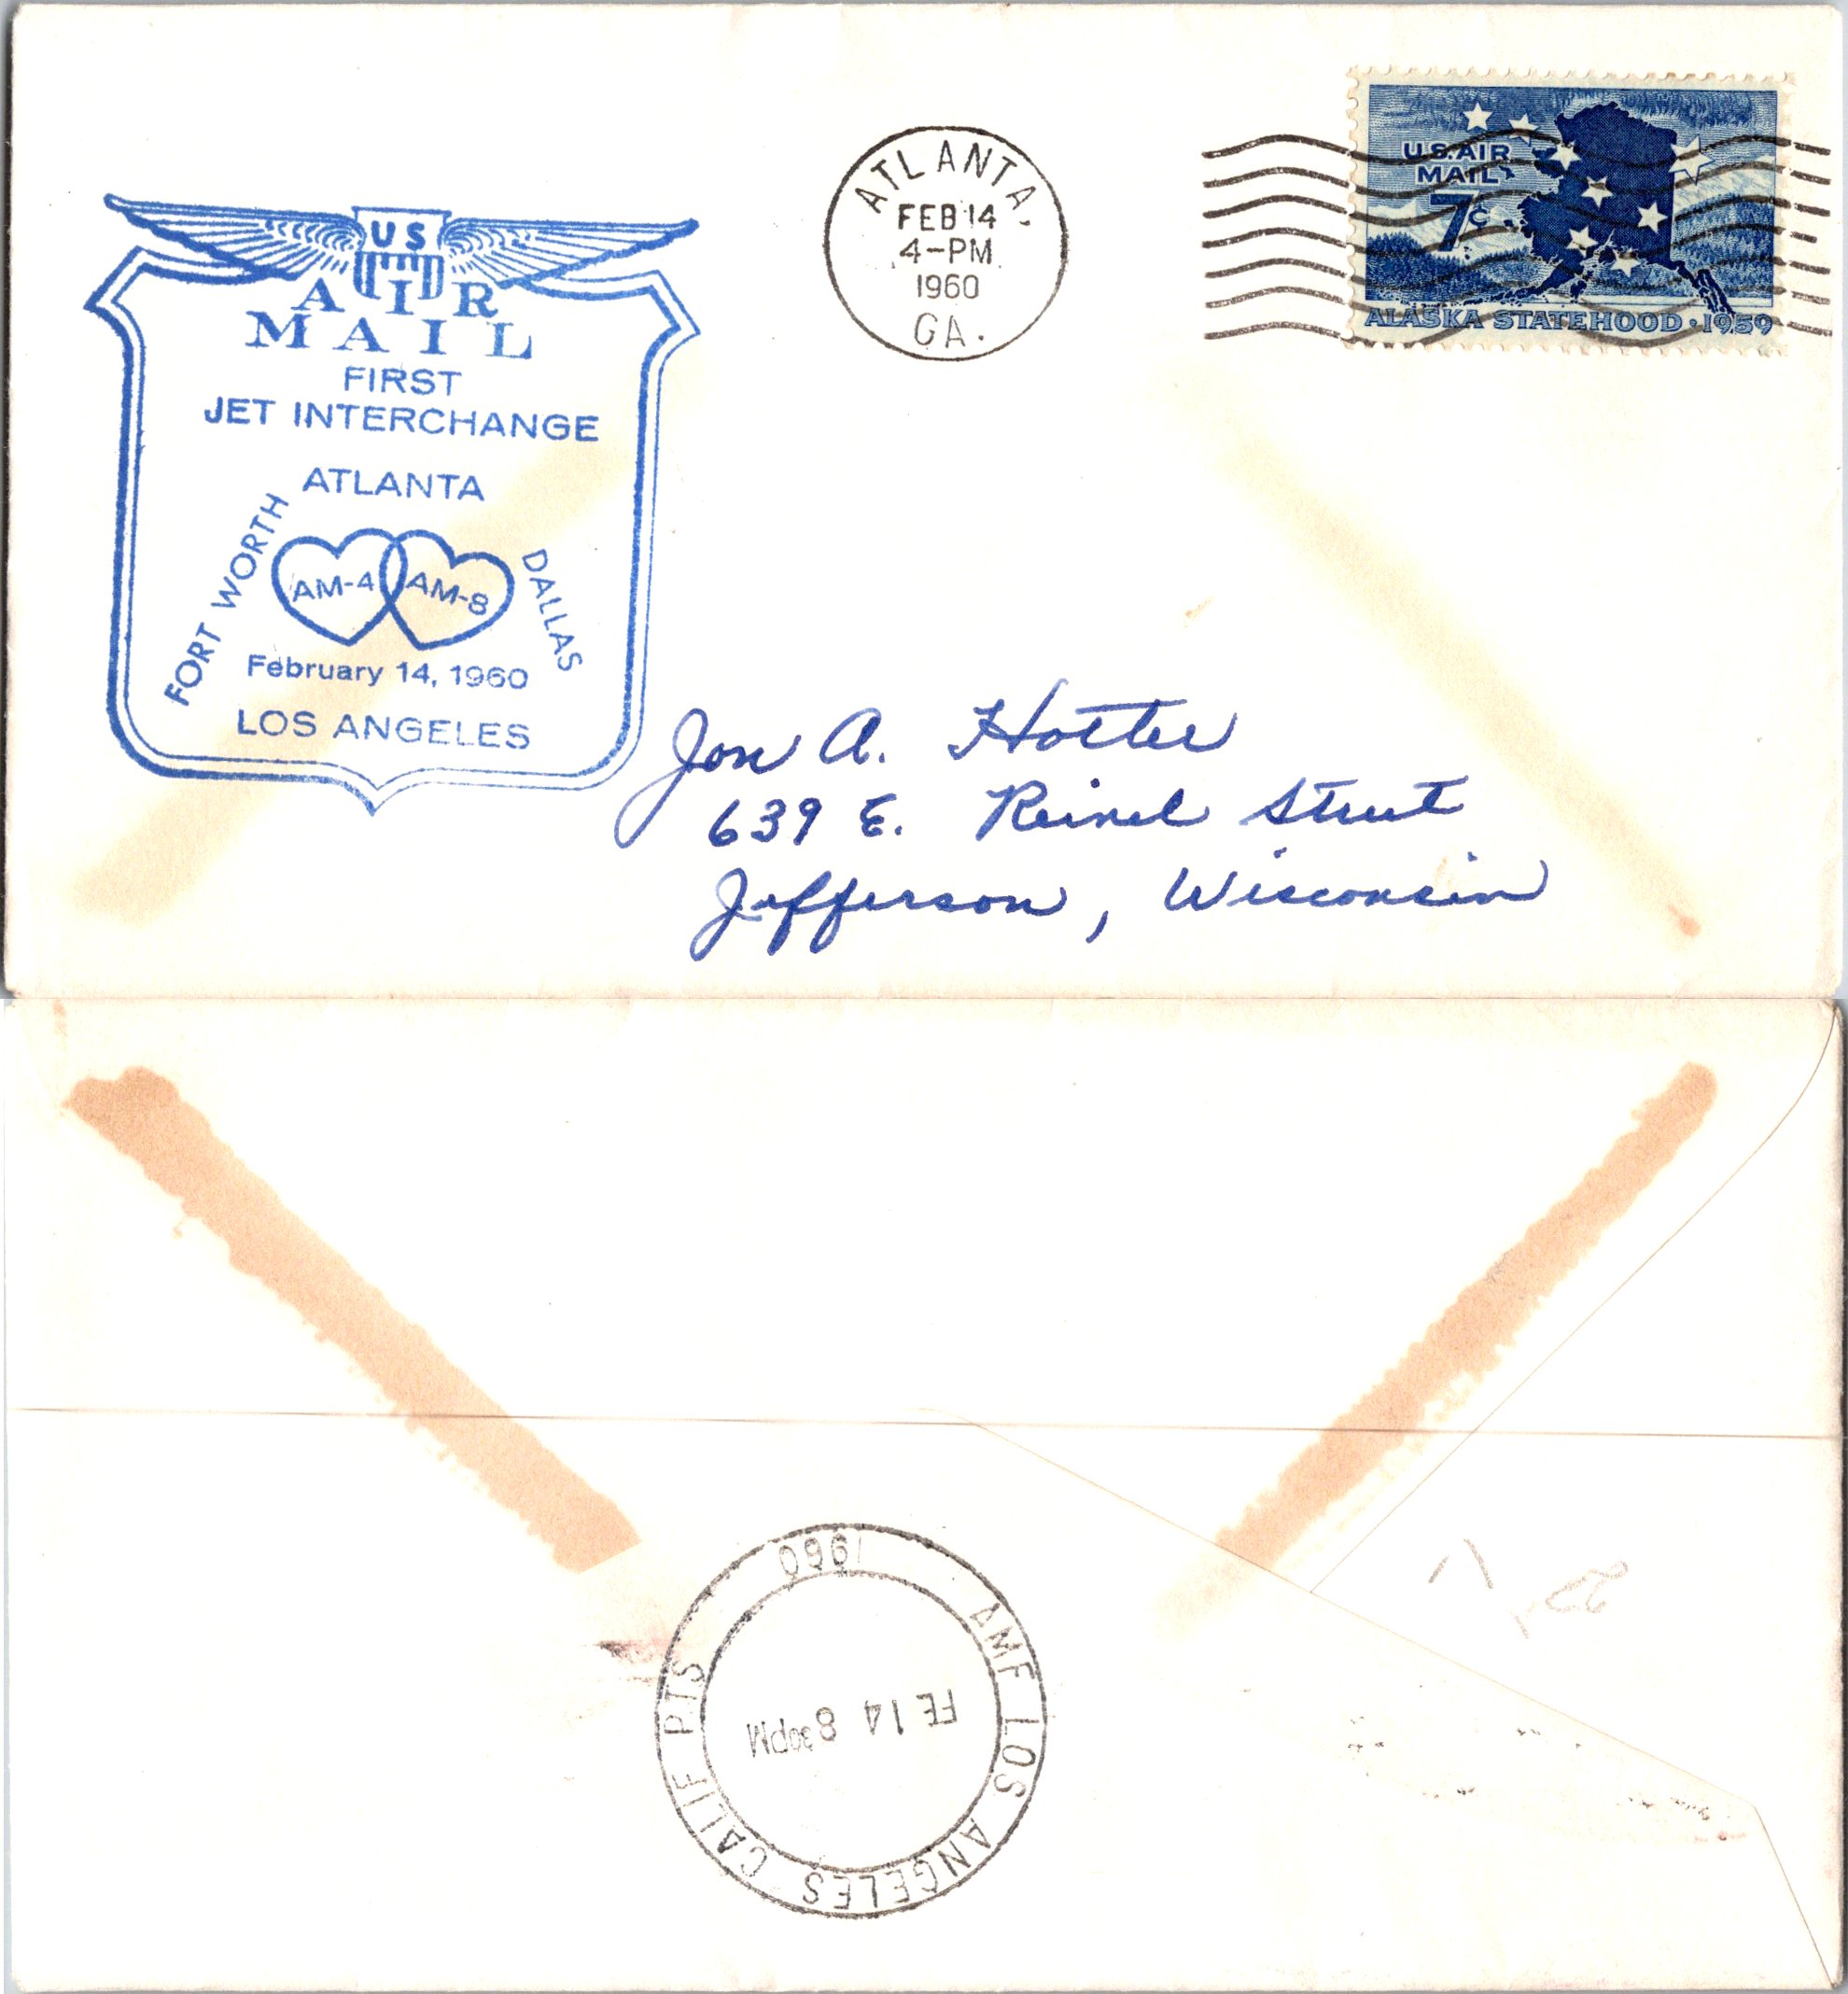 US
AIR
MAIL
FIRST
JET INTERCHANGE
ATLANTA
FORT WORTH
AM-4 AM-8
DALLAS
February 14, 1960
LOS ANGELES
ATLANTA,
FEB 14
4-PM
1960
GA.
U.S. AIR
MAIL
7c
ALASKA STATEHOOD · 1959
Jon A. Hotter
639 E. Reinel Street
Jefferson, Wisconsin
AMF LOS ANGELES CALIF PTS
1960
FE 14 8 30PM